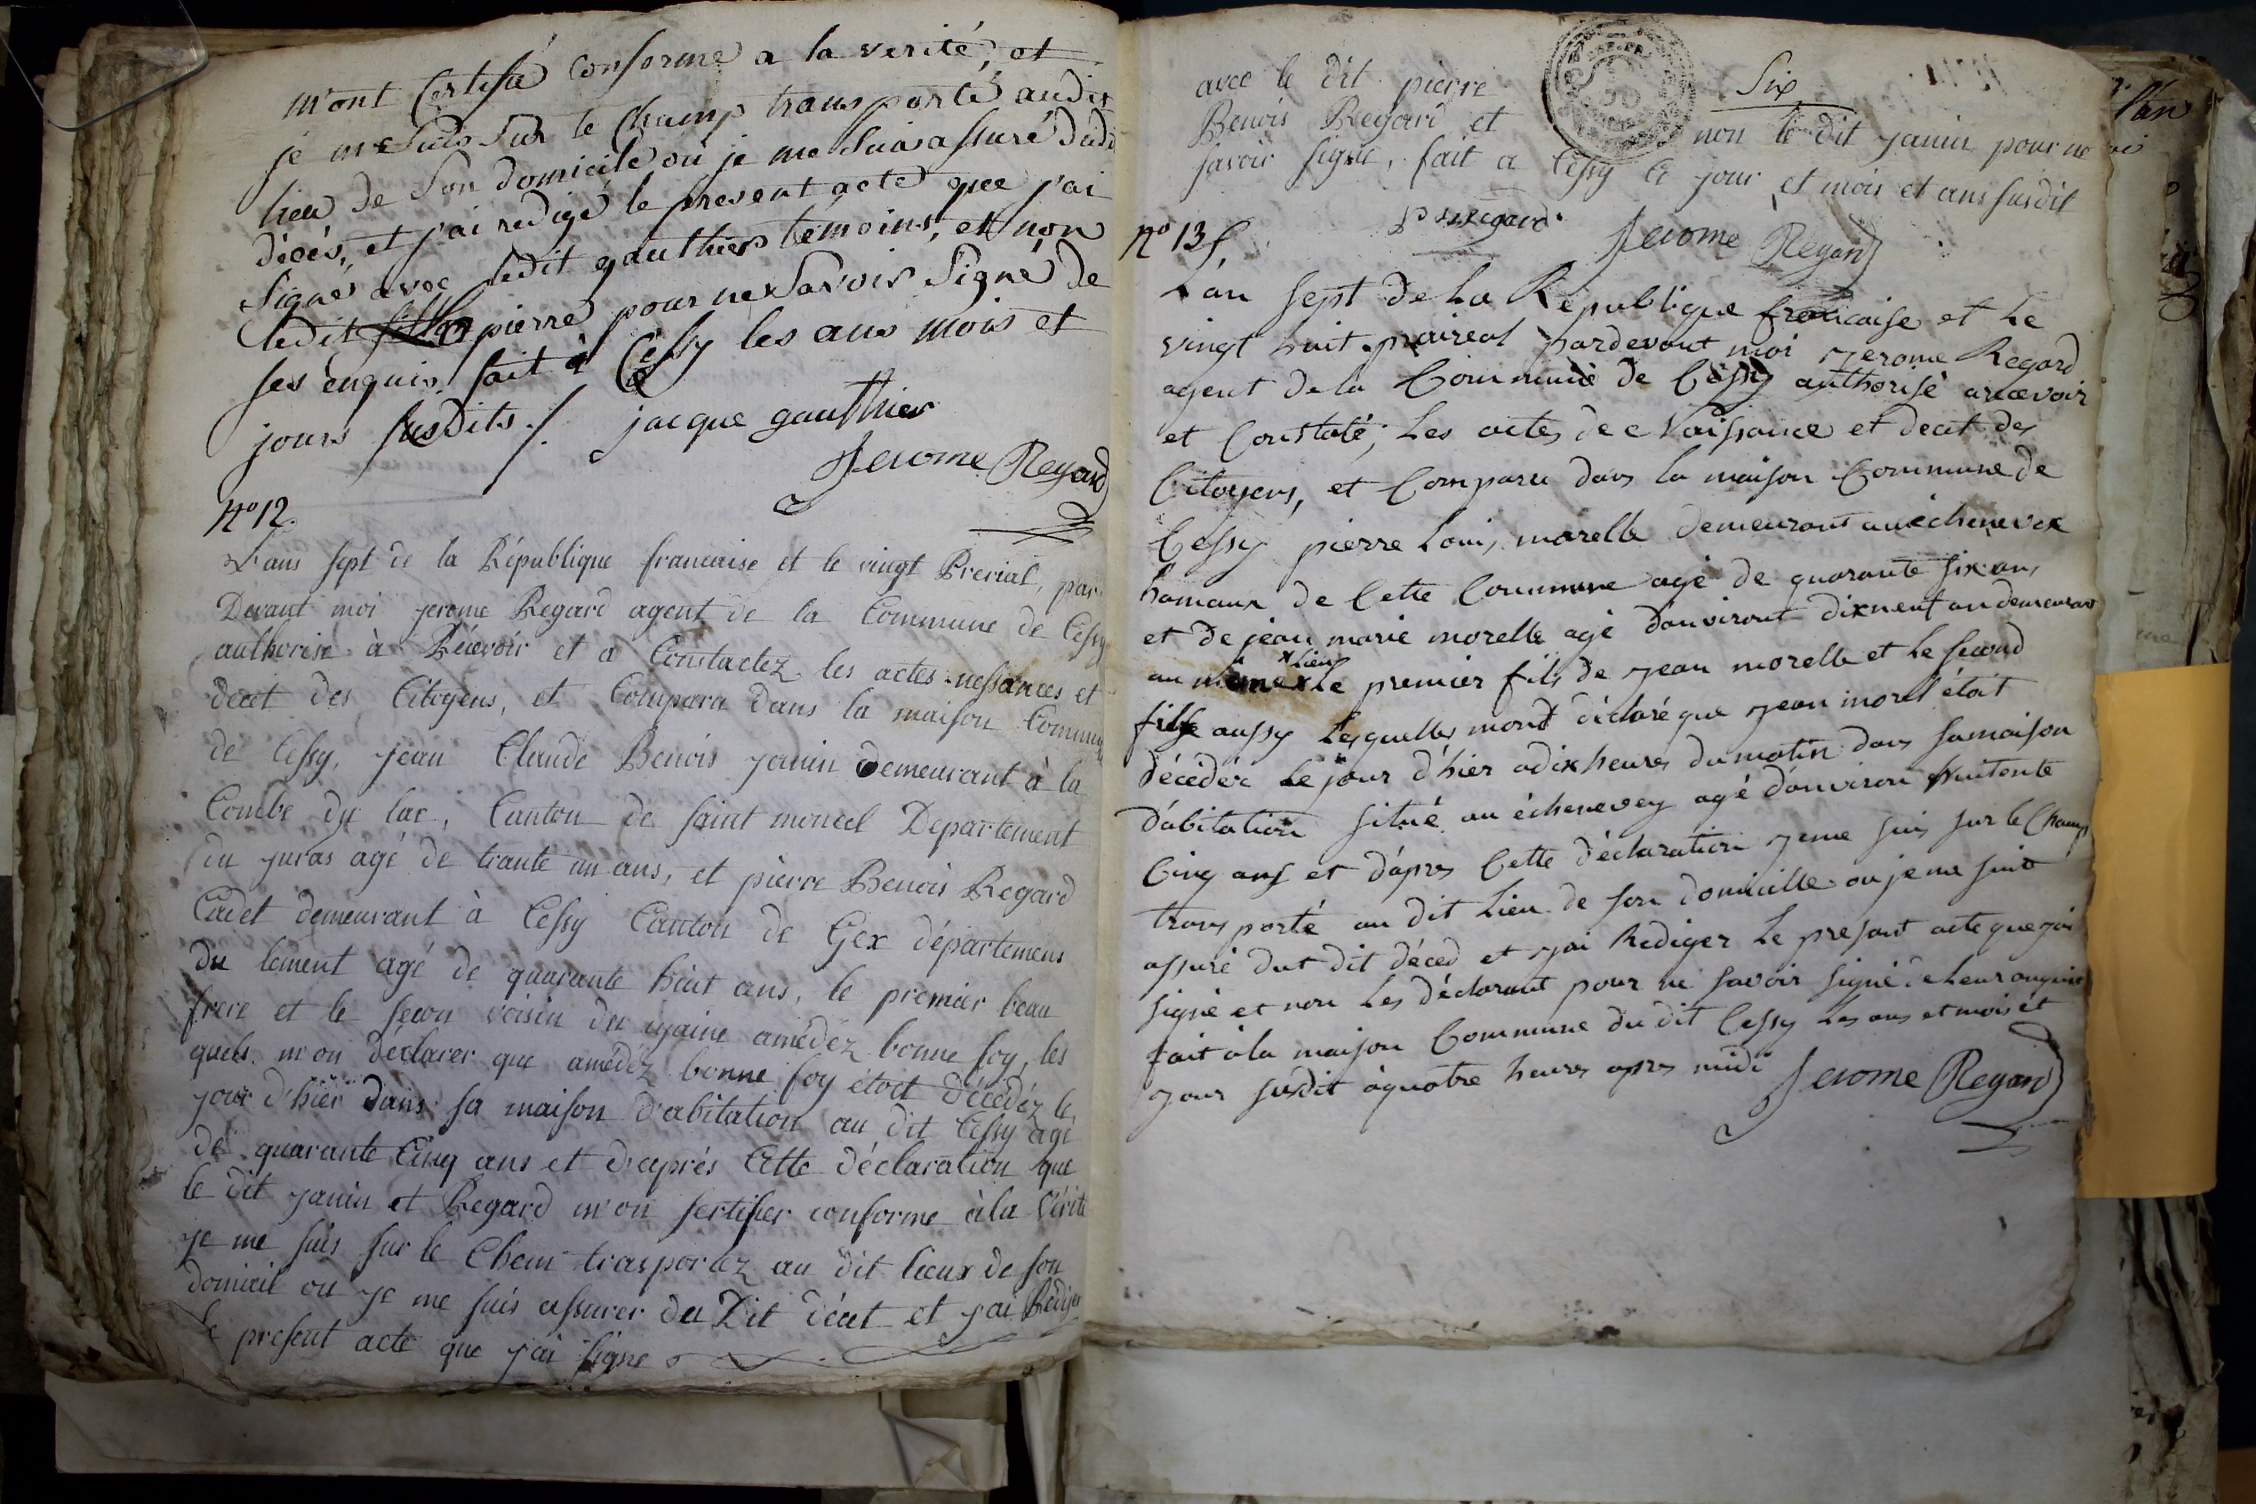 m'ont Certifié conforme a la verité, et
je me suis sur le Champ transporté audit
lieu de son domicile ou je me suis assuré dudi
décés, et j'ai redigé le present acte que j'ai
signés avec ledit gauthier temoins, et non
ledit pierre pour ne savoir signé de
ses enquis, fait à Cessy les ans mois et
jours susdits ./. jacque gauthier
Jerome Regard
N° 12.
L'ans sept de la République francaise et le vingt Prerial, par
Devant moi jerome Regard agent de la Commune de Cessy
authorise à Recevoir et a Constactez les actes nessances et
decet des Citoyens, et Compara dans la maison Commune
de Cessy, jean Claude Benois janin demeurant à la
Combe du lac, Canton de saint moncel Departement
du juras agé de trante un ans, et pierre Benois Regard
Cadet demeurant à Cessy Canton de Gex département
du lement agé de quarante huit ans, le premier beau
frere et le secon voisin du amédéz bonne foy, les
quels m'on déclarer que amédéz bonne foy étoit décédéz le
jour d'hiér dans sa maison d'abitation au dit Cessy agé
de quarante Cinq ans et d'aprés Cette déclaration que
le dit janin et Regard m'on sertifier conforme à la Vérité
je me suis sur le Cham trasportez au dit lieux de son
domicil ou je me suis assurer du Dit décet et j'ai Rédiger
le present acte que j'ai signe
Six
avec le dit pierre
Benois Regard et non le dit janin pour ne
savoir signe, fait a Cessy le jour et mois et ans susdit
Jerome Regard
N° 13
L'an sept de La République francaise et Le
vingt huit praireal pardevant moi jerome Regard
agent de la Commune de Cessy authorisé arecevoir
et Constaté, Les actes de Naissance et decet des
Citoyens, et Comparu dans la maison Commune de
Cessy pierre Louis morelle demeurant au échenevex
hamaux de Cette Commune agé de quarante six ans
et de jean marie morelle agé d'anviront dixneuf an demeurant
au même x Le premier fils de jean morelle et Le second
x Lieu
fils aussy Lesquelles mond déclaré que jean morel étoit
décédér Le jour d'hier a dix heures du matin dans sa maison
d'abitation situé au échenevey agé d'anviron huitente
Cinq ans et d'apres Cette déclaration je me suis sur le Champ
transporté au dit Lieu de son domicille ou je me suis
assuré dut dit déced et jai Rediger Le present acte que jai
signé et non Les déclarant pour ne savoir signé de Leur anquis
fait à la maison Commune du dit Cessy Les ans et mois et
jour susdit à quatre heures apres midi
Jerome Regard